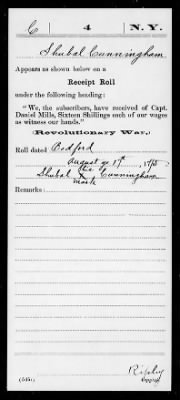 C | 4 | N.Y.
Shubal Cunningham.
Appears as shown below on a
Receipt Roll
under the following heading:
"We, the subscribers, have received of Capt.
Daniel Mills, Sixteen Shillings each of our wages
as witness our hands."
(Revolutionary War.)
Roll dated Bedford
August ye 17th, 1775
his
Shubal X Cunningham
mark
Remarks:
(545)
Copyist.